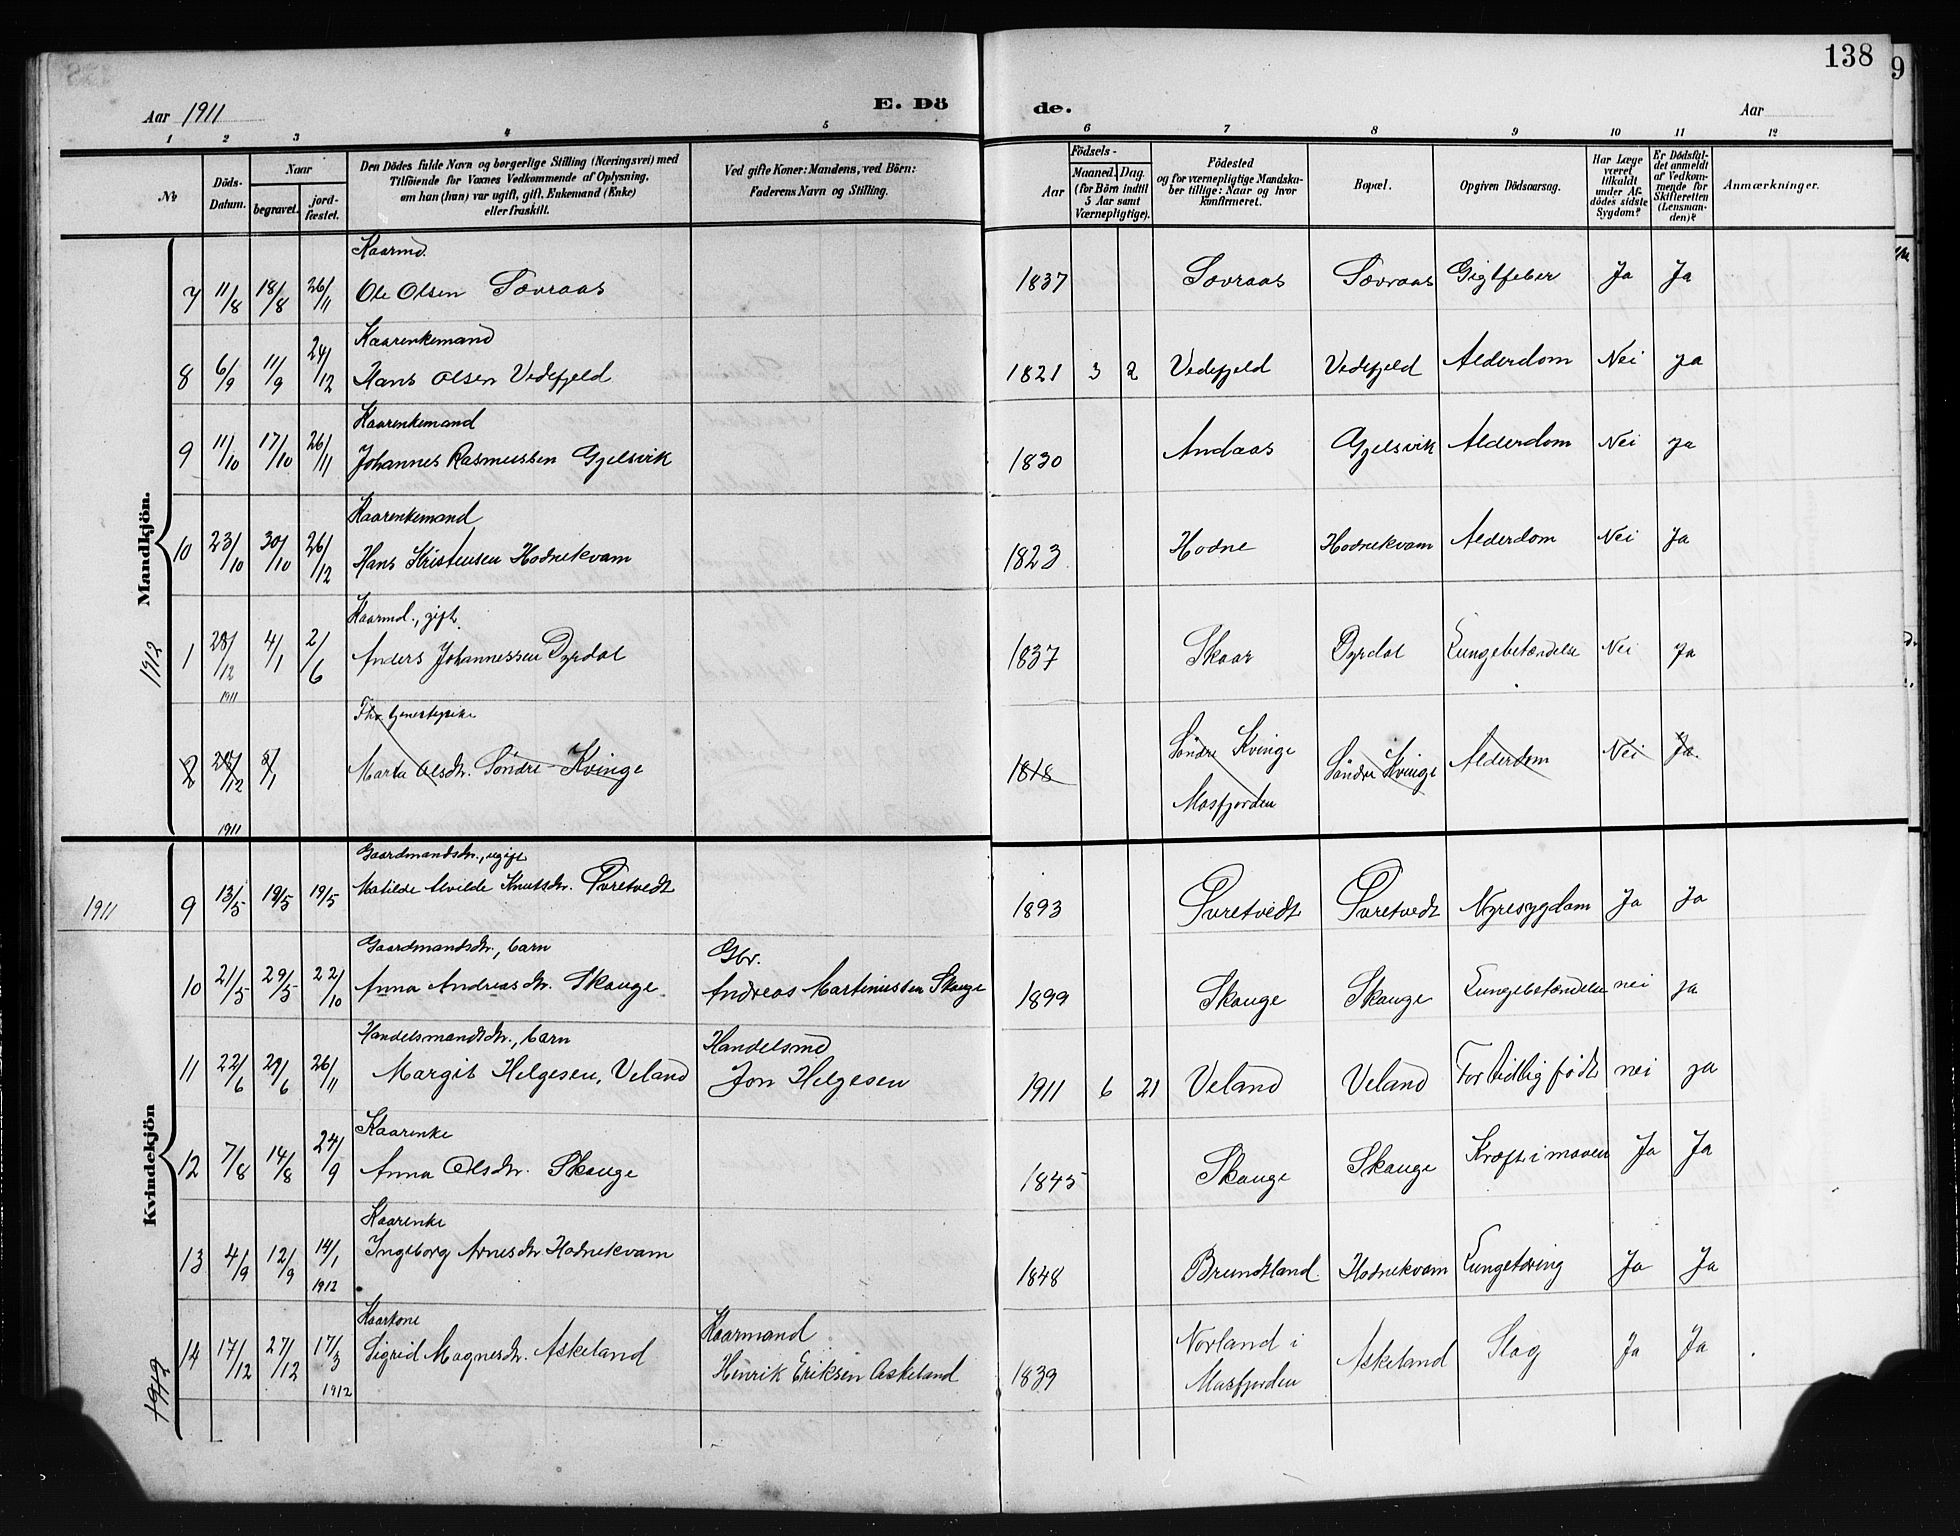 138
9
Aar 1911
E. Dö
de.
Aar
1 2 3 4 5 6 7 8 9 10 11 12
№
Döds-Datum.
Naar
begravet.
jord-fæstet.
Den Dödes fulde Navn og borgerlige Stilling (Næringsvei) med
Tilföiende for Voxnes Vedkommende af Oplysning,
om han (hun) var ugift, gift, Enkemand (Enke)
eller fraskilt.
Ved gifte Koner: Mandens, ved Börn:
Faderens Navn og Stilling.
Födsels-
Aar
Maaned. Dag.
(for Börn indtil
5 Aar samt
Værnepligtige).
Födested
og for værnepligtige Mandska-
ber tillige: Naar og hvor
konfirmeret.
Bopæl.
Opgiven Dödsaarsag.
Har Læge
været
tilkaldt
under Af-
dödes sidste
Sygdom?
Er Dödsfal-
det anmeldt
af Vedkom-
mende for
Skifteretten
(Lensman-
den)?
Anmærkninger.
Mandkjön.
Kaarmd.
7 11/8 18/8 26/11 Ole Olsen Sævraas 1837 Sævraas Sævraas Gigtfeber Ja Ja
Kaarenkemand
8 6/9 11/9 24/12 Hans Olsen Vedefjeld 1821 3 2 Vedefjeld Vedefjeld Alderdom Nei ja
Kaarenkemand
9 11/10 17/10 26/11 Johannes Rasmussen Gjelsvik 1830 Andaas Gjelsvik Alderdom Nei ja
Kaarenkemand
10 23/10 30/10 26/12 Hans Kristensen Hodnekvam 1823 Hodne Hodnekvam Alderdom Nei Ja
1912
Kaarmd., gift.
1 28/12 1911 4/1 2/6 Anders Johannessen Dyrdal 1837 Skaar Dyrdal Lungebetændelse Nei Ja
tjenestepike
2 /12 1911 8/1 Marta Olsdtr. Söndre Kvinge 1818 Söndre Kvinge Masfjorden Söndre Kvinge Alderdom Nei Ja.
Kvindekjön
1911
Gaardmandsdtr., ugift
9 13/5 19/5 19/5 Matilde Alvilde Knutsdtr. Tveitvedt 1893 Tveitvedt Tveitvedt Nyresygdom Ja Ja
Gaardmandsdtr., barn
10 21/5 29/5 22/10 Anna Andreasdtr. Skauge Gbr. Andreas Martinussen Skauge 1899 Skauge Skauge Lungebetændelse nei ja
Handelsmandsdtr., barn
11 22/6 29/6 26/11 Margit Helgesen, Veland Handelsmd Jon Helgesen 1911 6 21 Veland Veland For tidlig födt nei ja
Kaarenke
12 7/8 14/8 24/9 Anna Olsdtr. Skauge 1845 Skauge Skauge Kræft i maven Ja Ja
Kaarenke
13 4/9 12/9 14/1 1912 Ingeborg Arnesdtr Hodnekvam 1848 Brundtland Hodnekvam Lungetæring Ja Ja
Kaarkone
14 17/12 27/12 17/3 1912 Sigrid Magnesdtr. Askeland Kaarmand Henrik Eriksen Askeland 1839 Norland i Masfjorden Askeland Slag Ja Ja
1912